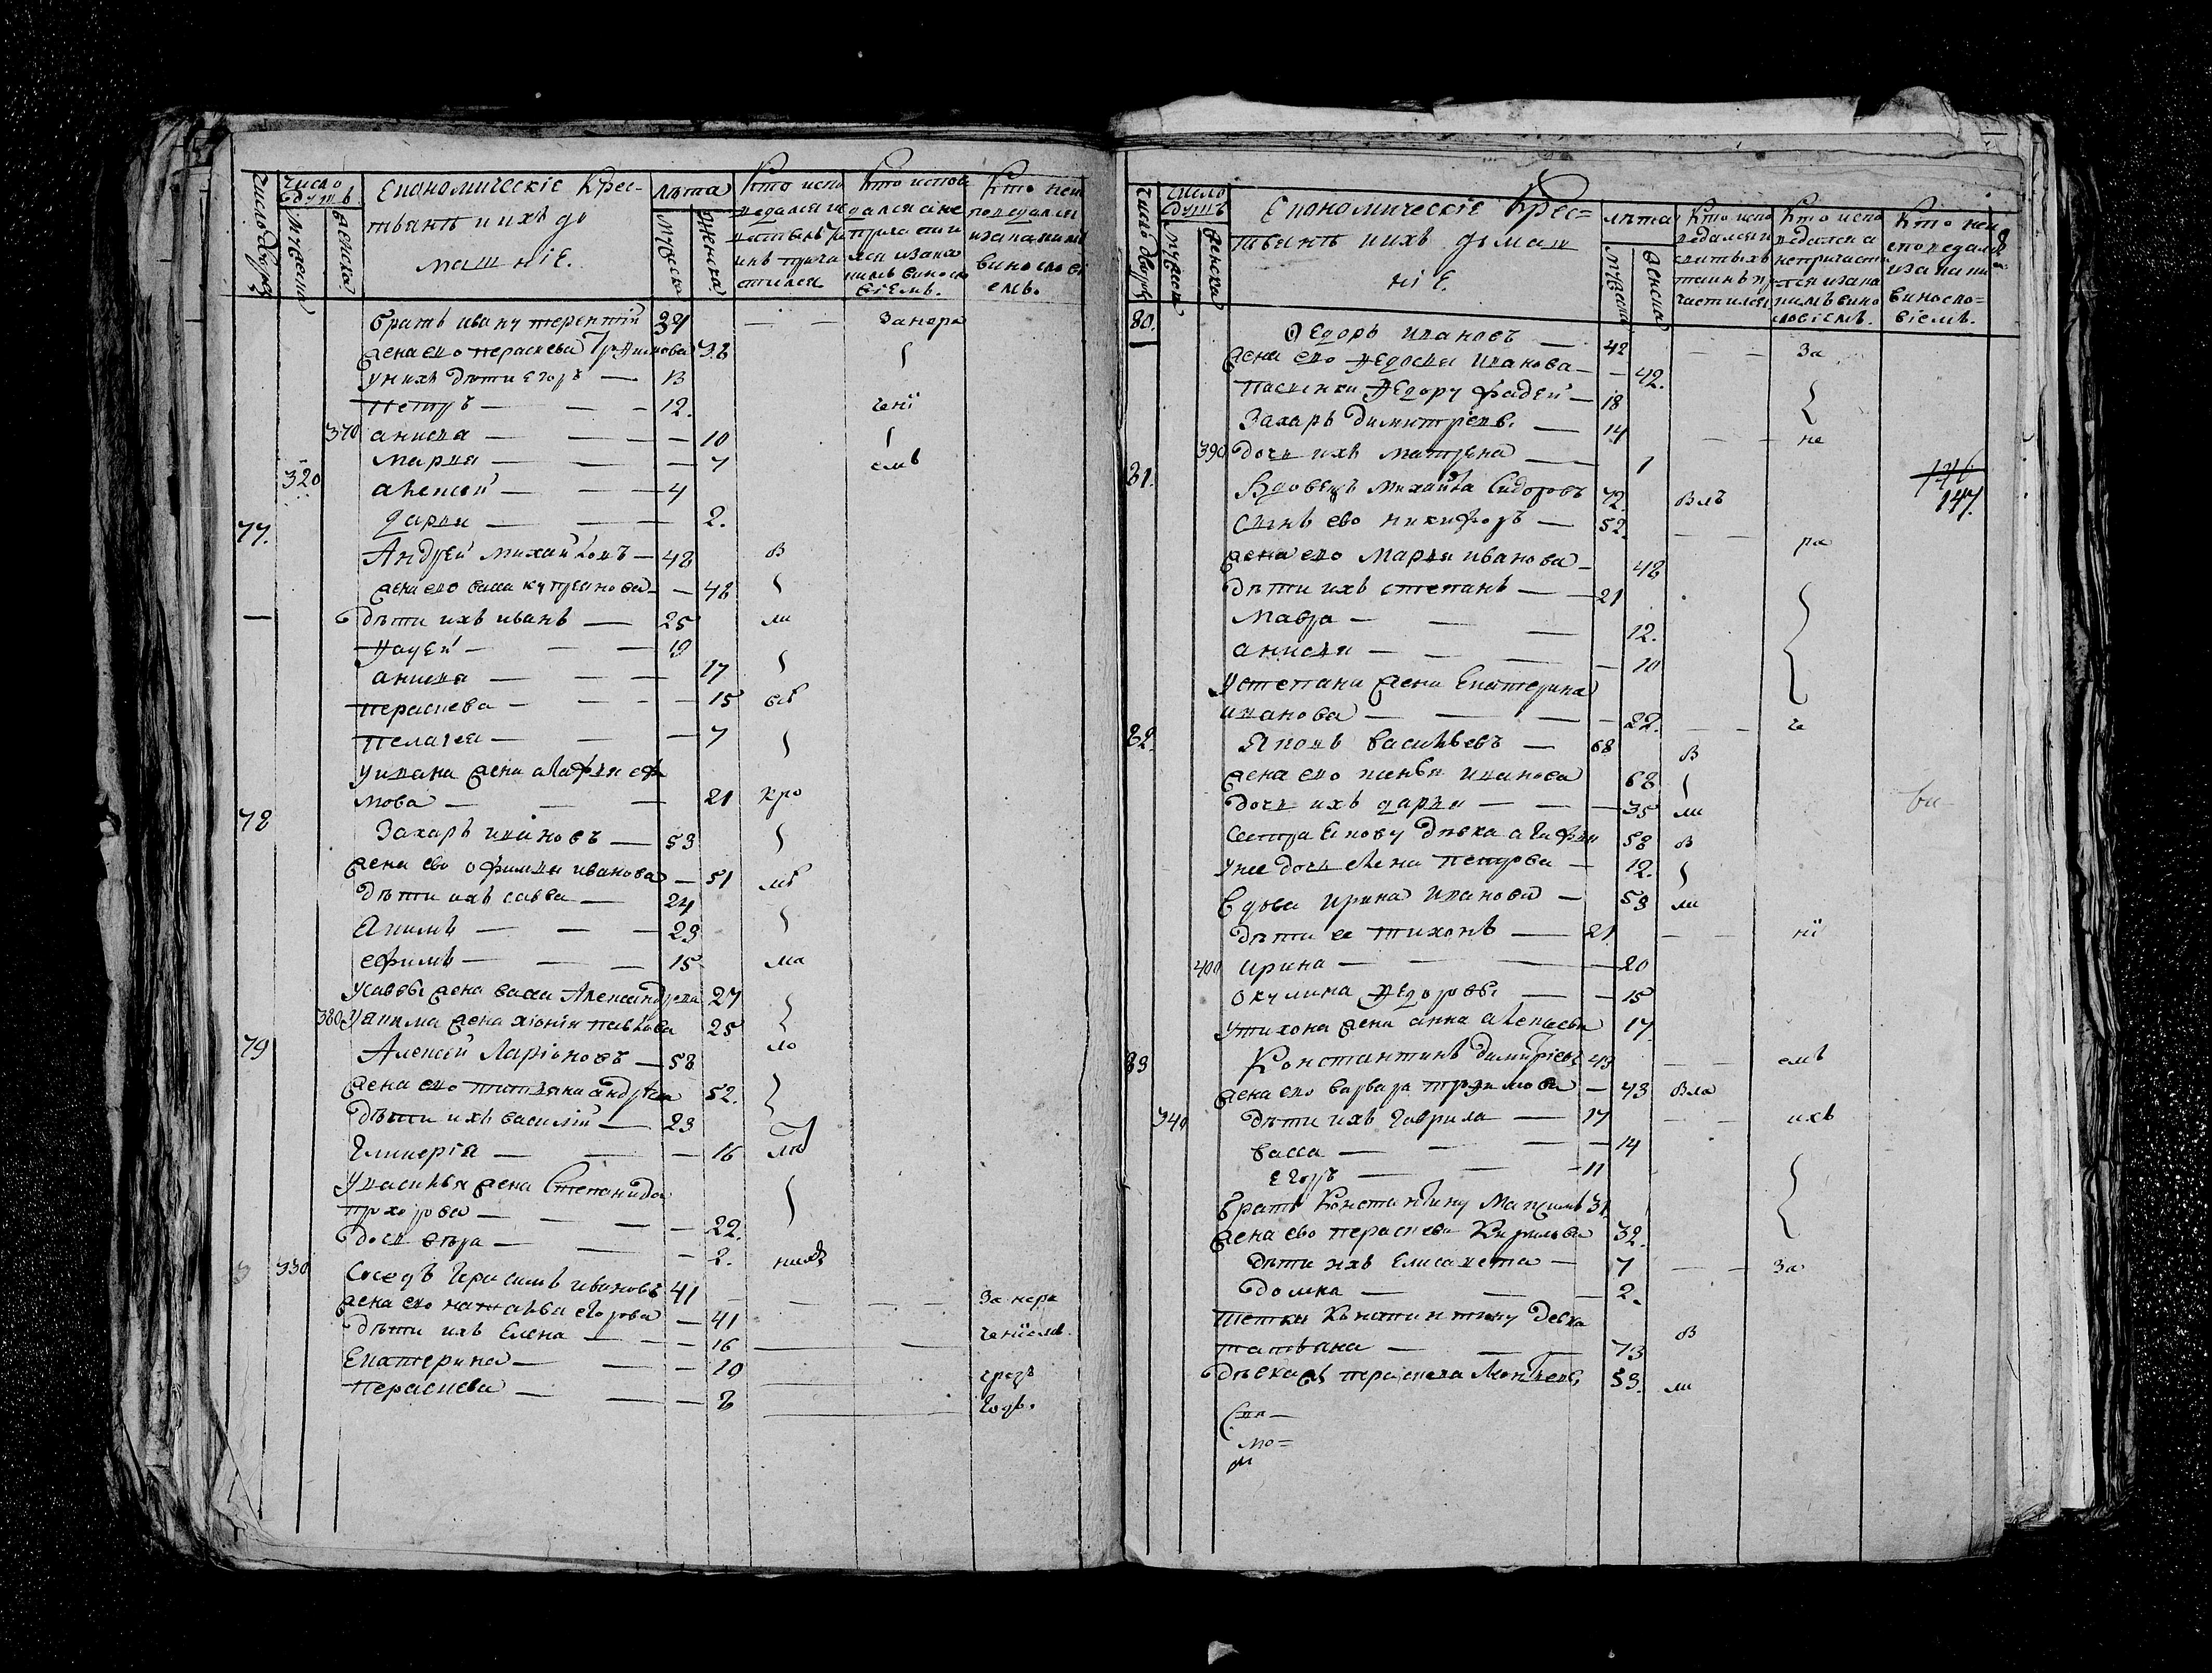 Число дворовъ
Число душъ
Мужеска
Женска
Економическіе Крес-
тьянъ и ихъ до
машніе.
лѣта
Мужеска
Женска
Кто испо
ведался и
Кто испове
дался а не
Кто неис
поведался
братъ ивану терентій 34 — — За нера
жена ево параскева 38
у нихъ дѣти егоръ — 13
петръ — — 12. чені
370 анисья — — — 10
марья — — — 7 емъ
320 алексей — — 4
дарья — — — 2.
77. Андрей михайловъ — 48 в
жена ево васа куприянова — 48
дѣти ихъ иванъ — 25 ли
фадей — — — 19
анисья — — — 17
параскева — — — 15
пелагея — — — 7
у ивана жена агафья
мова — — — 21 кро
78 Захаръ ивановъ — 53
жена ево офимья иванова — 51
дѣти ихъ савва — 24
Акимъ — — — 23
ефимъ — — — 15 ма
у саввы жена васа Александрова 27
380 у акима жена хіонія павлова 25
79 Алексей Ларіоновъ — 58 ло
жена ево татьяна андреева 52.
дѣти ихъ василій — 23
Гликерія — — — 16
у василья жена Степанида
прохорова — — — 22.
дочь вѣра — — — 2.
330 Соседъ Герасимъ ивановъ 41 — — За нера
жена ево наталья егорова — 41
дѣти ихъ Елена — — 16 — — ченіемъ.
Екатерина — — — 10
Параскева — — — 8
Число дворовъ
Число душъ
Мужеска
Женска
Економическіе Крес=
тьянъ и ихъ домаш
ніе.
лѣта
Мужеска
Женска
Кто испо
ведался и
Кто испо
ведался а
не причасти
Кто неи
споведался
80. Ѳедоръ ивановъ — 42 — — За
жена ево Ѳедосья иванова — 42.
пасынки Ѳедору фадей — 18
Захаръ димитріевъ. — 14 — — не
390 дочь ихъ матрена — 1
81. Вдовецъ михайла Сидоровъ 72. Влъ
146
147.
сынъ ево никифоръ — 52. — — ра
жена ево Марья иванова — 48
дѣти ихъ степанъ — 21
Мавра — — — 12.
анисья — — — 10
у степана жена Екатерина
иванова — — — 22. — — че
82. Яковъ васильевъ — 68 в
жена ево иванова 68
дочь ихъ дарья — — 35 ли
сестра Якову дѣвка агафья 58 в
у нее дочь елена петрова — 12.
вдова ирина иванова — 53 ли
дѣти ее тихонъ — 21 — — ні
400 ирина — — — 20
окулина Ѳедоровы — 15
у тихона жена анна алексеева 17
83 Константинъ димитріевъ 43 — — емъ
жена ево варвара — 43 Вла
340 дѣти ихъ гаврила — 17 — — ихъ
васса — — — 14
егоръ — — — 11
братъ Константину Максимъ 31.
жена ево параскева Кирилова 32.
дѣти ихъ Елисавета — 7 — — За
домна — — — 2.
тетка Константину девка
татьяна — — — 73 в
дѣвка параскева 53. ли